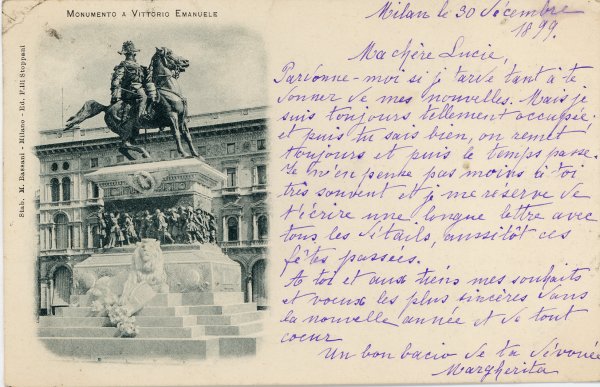 MONUMENTO A VITTORIO EMANUELE
Stab. M. Bassani - Milano - Ed. F.lli Stoppani
Milan le 30 Décembre
1899.
Ma chère Lucie
Pardonne-moi si je tarde tant à te
donner de mes nouvelles. Mais je
suis toujours tellement occupée.
et puis tu sais bien, on remet
toujours et puis le temps passe.
Je n'en pense pas moins à toi
très souvent et je me réserve de
t'écrire une longue lettre avec
tous les détails, aussitôt ces
fêtes passées.
A toi et aux tiens mes souhaits
et voeux les plus sincères dans
la nouvelle année et de tout
coeur
Un bon bacio de ta dévouée
Margherita